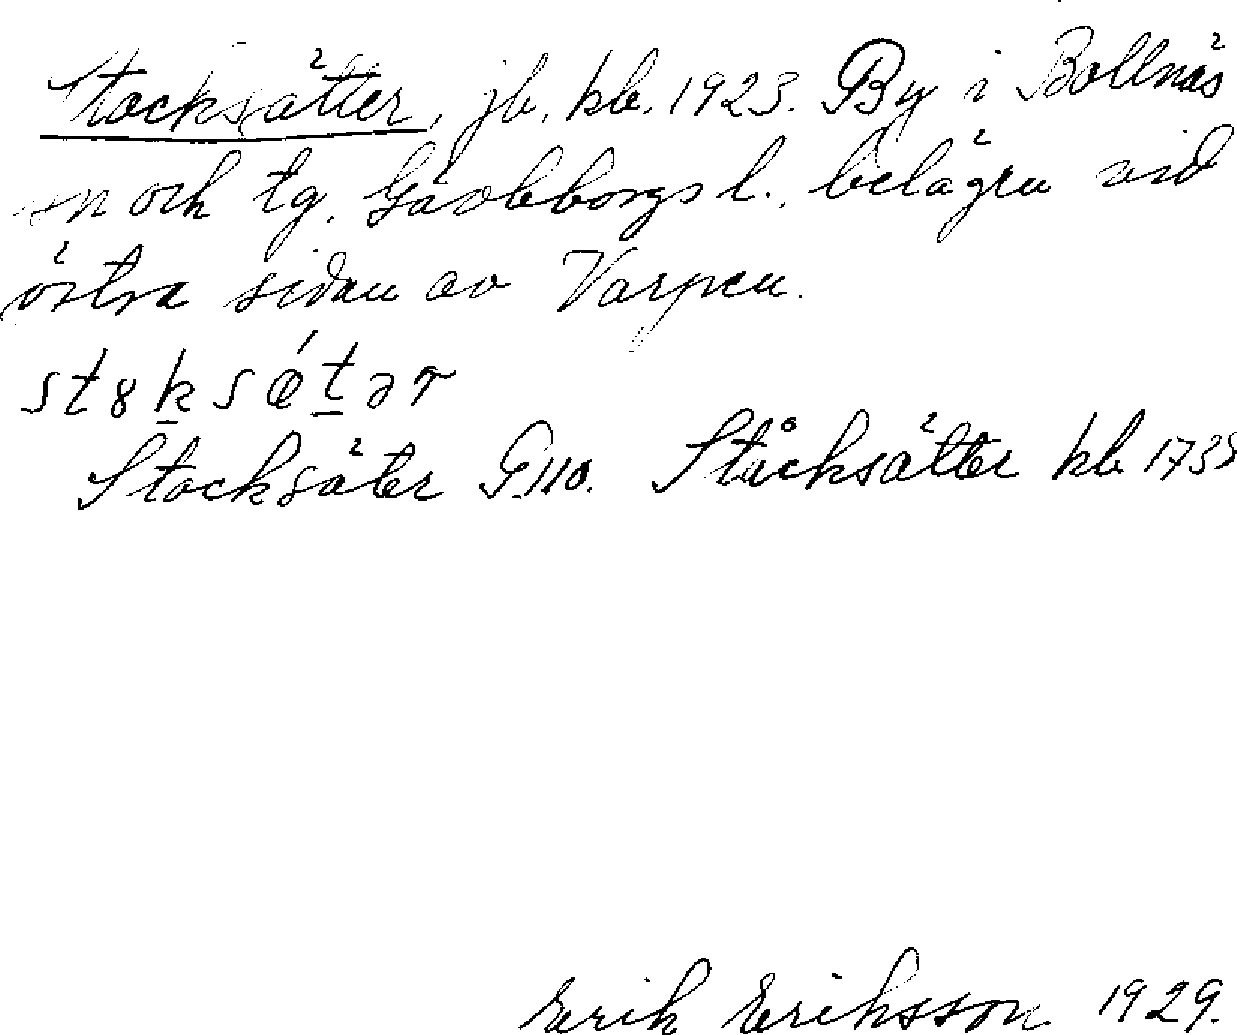 Stocksätter, jb, kb. 1923. By i Bollnäs
sn och tg. Gävleborgs l., belägen vid
östra sidan av Varpen.
st8ksǽtər
Stocksäter G.110. Ståcksätter kb. 1735
Erik Eriksson 1929.